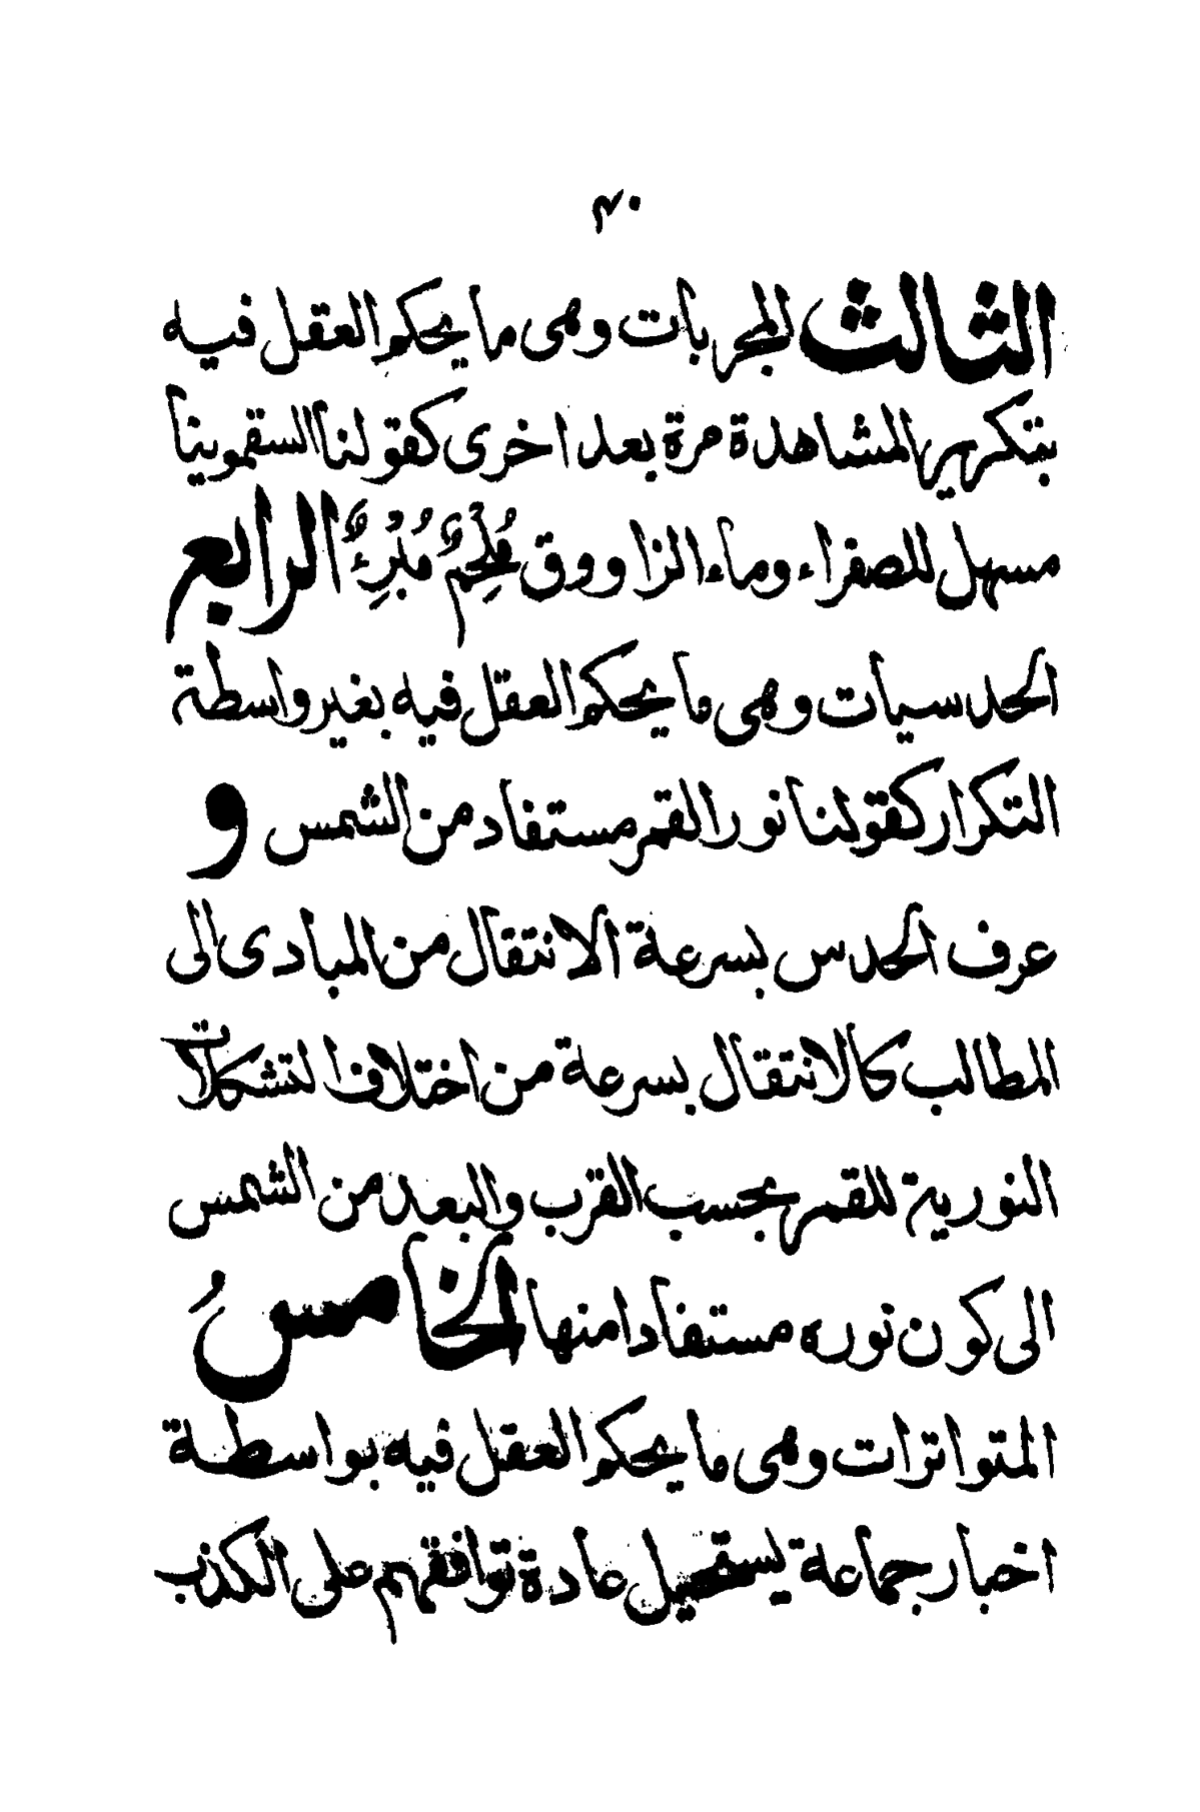 ٣٠
الثالث المجربات وهى ما يحكم العقل فيه
بتكرير المشاهدة مرة بعد اخرى كقولنا السقمونيا
مسهل للصفراء وماء الزاووق مُلْحِمٌ مُبْرِءٌ الرابع
الحدسيات وهى ما يحكم العقل فيه بغير واسطة
التكرار كقولنا نور القمر مستفاد من الشمس و
عرف الحدس بسرعة الانتقال من المبادى الى
المطالب كالانتقال بسرعة من اختلاف التشكلات
النورية للقمر بحسب القرب والبعد من الشمس
الى كون نوره مستفادا منها الخامسُ
المتواترات وهى ما يحكم العقل فيه بواسطة
اخبار جماعة يستحيل عادة توافقهم على الكذب